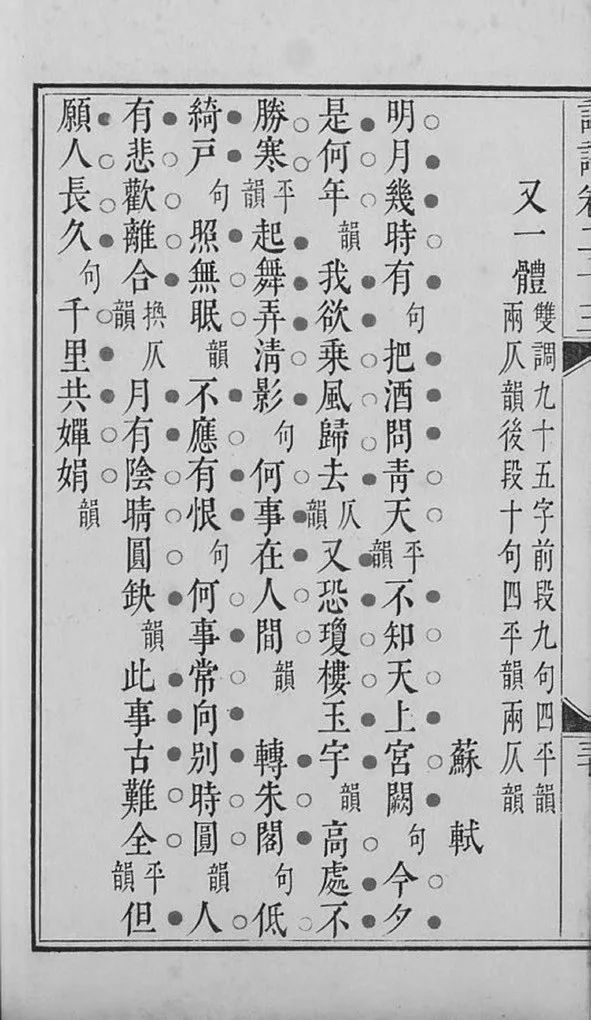 詞譜卷二十三
又一體 雙調九十五字前段九句四平韻
兩仄韻後段十句四平韻兩仄韻
蘇軾
明月幾時有句把酒問青天平韻不知天上宮闕句今夕
是何年韻我欲乘風歸去仄韻又恐瓊樓玉宇韻高處不
勝寒平韻起舞弄清影句何事在人間韻 轉朱閣句低
綺戶句照無眠韻不應有恨句何事常向別時圓韻人
有悲歡離合換仄韻月有陰晴圓缺韻此事古難全平韻但
願人長久句千里共嬋娟韻